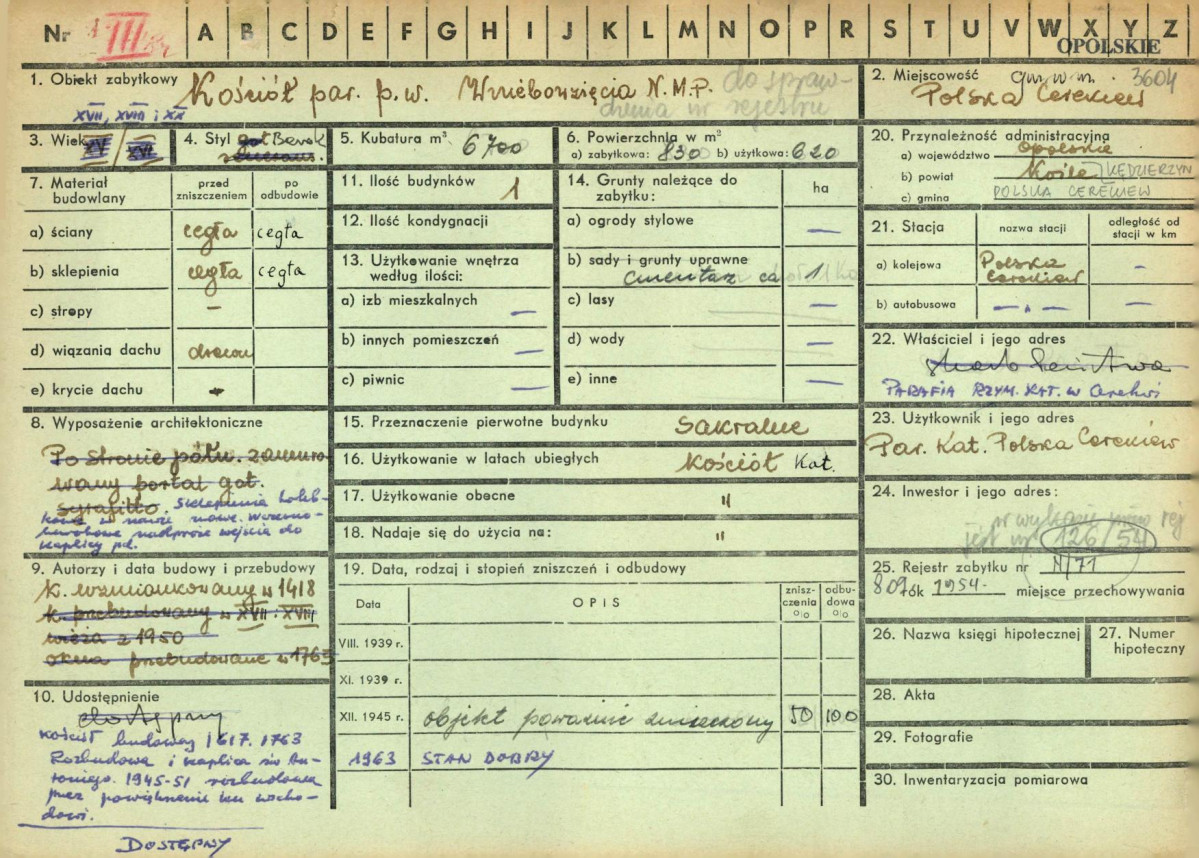 Nr III A B C D E F G H I J K L M N O P R S T U V W X Y Z
OPOLSKIE
1. Obiekt zabytkowy Kościół par. p.w. Wniebowzięcia N.M.P. do spraw-
dzenia w rejestrze
XVII, XVIII i XX
2. Miejscowość 3604
Polska Cerekiew
3. Wiek XV / XVI
4. Styl got Barok
5. Kubatura m³ 6700
6. Powierzchnia w m²
a) zabytkowa: 830 b) użytkowa: 620
20. Przynależność administracyjna
a) województwo opolskie
b) powiat Koźle KĘDZIERZYN
c) gmina POLSKA CEREKIEW
7. Materiał budowlany
przed zniszczeniem
po odbudowie
a) ściany cegła cegła
b) sklepienia cegła cegła
c) stropy –
d) wiązania dachu
e) krycie dachu
11. Ilość budynków 1
12. Ilość kondygnacji
13. Użytkowanie wnętrza
według ilości:
a) izb mieszkalnych –
b) innych pomieszczeń –
c) piwnic –
14. Grunty należące do
zabytku: ha
a) ogrody stylowe –
b) sady i grunty uprawne
cmentarz ca 1
c) lasy –
d) wody –
e) inne –
21. Stacja nazwa stacji odległość od
stacji w km
a) kolejowa Polska
Cerekiew –
b) autobusowa – „ – –
22. Właściciel i jego adres
PARAFIA RZYM. KAT. w Cerekwi
23. Użytkownik i jego adres
Par. Kat. Polska Cerekiew
8. Wyposażenie architektoniczne
Po stronie półn. zamuro-
wany portal got.
sgrafitto. Sklepienia koleb-
kowe w nawie nowe. Wczesno-
barokowe nadproże wejścia do
kaplicy pd.
15. Przeznaczenie pierwotne budynku Sakralne
16. Użytkowanie w latach ubiegłych Kościół Kat.
17. Użytkowanie obecne "
18. Nadaje się do użycia na: "
24. Inwestor i jego adres:
w wykazie rej
jest nr 126/54
25. Rejestr zabytku nr
809 rok 1954. miejsce przechowywania
9. Autorzy i data budowy i przebudowy
K. wzmiankowany w 1418
k. przebudowany w XVII i XVIII
wieża z 1950
okna przebudowane w 1763
19. Data, rodzaj i stopień zniszczeń i odbudowy
Data OPIS znisz-
czenia
o/o odbu-
dowa
o/o
VIII. 1939 r.
XI. 1939 r.
XII. 1945 r. objekt poważnie zniszczony 50 100
1963 STAN DOBRY
26. Nazwa księgi hipotecznej
27. Numer
hipoteczny
28. Akta
29. Fotografie
30. Inwentaryzacja pomiarowa
10. Udostępnienie
dostępny
Kościół budowany 1617. 1763
Rozbudowa i kaplica św An-
toniego. 1945-51 rozbudowa
przez powiększenie ku wscho-
dowi.
DOSTĘPNY